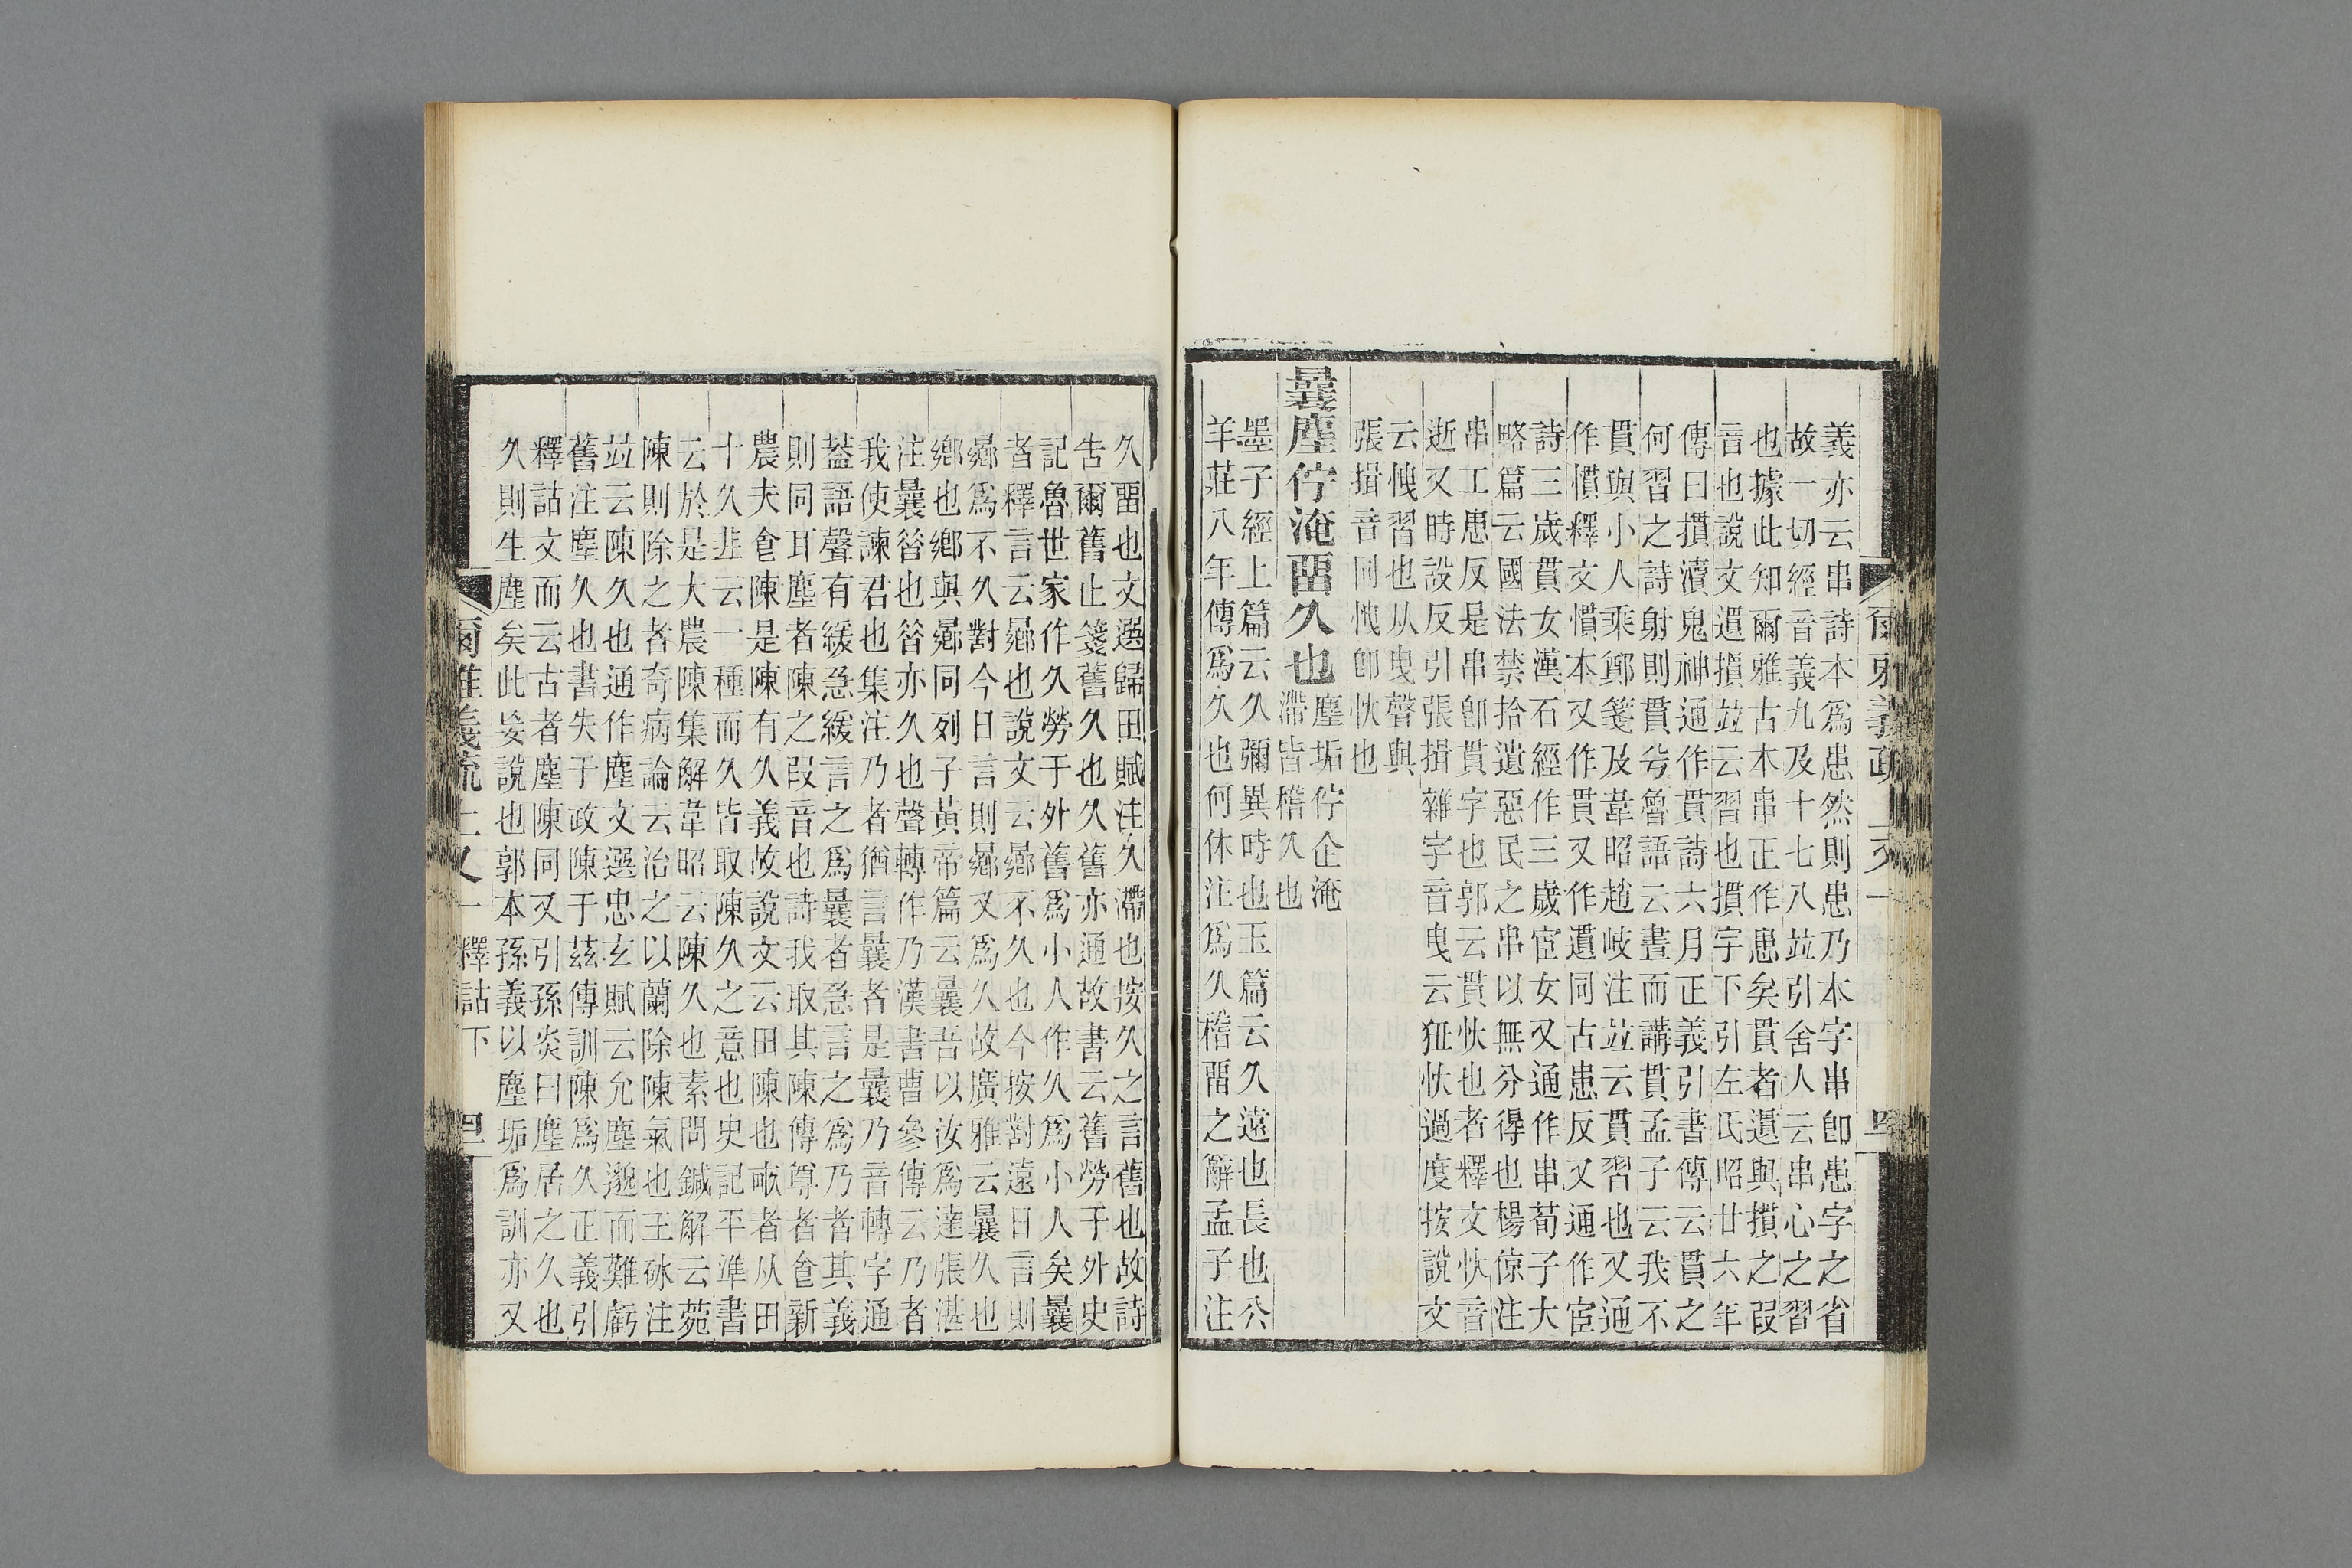 義亦云串詩本爲患然則患乃本字串卽患字之省
故一切經音義九及十七八竝引舍人云串心之習
也據此知爾雅古本串正作患矣貫者遺與摜之叚
音也說文遺摜竝云習也摜字下引左氏昭廿六年
傳曰摜瀆鬼神通作貫詩六月正義引書傳云貫之
何習之詩射則貫兮魯語云晝而講貫孟子云我不
貫與小人乘鄭箋及韋昭趙岐注竝云貫習也又通
作慣釋文慣本又作貫又作遺同古患反又通作宦
詩三歲貫女漢石經作三歲宦女又通作串荀子大
略篇云國法禁拾遺惡民之串以無分得也楊倞注
串工患反是串卽貫字也郭云貫忕也者釋文忕音
逝又時設反引張揖雜字音曳云狃忕過度按說文
云愧習也从曳聲與
張揖音同愧卽忕也
曩塵佇淹畱久也
塵垢佇企淹
滯皆稽久也
墨子經上篇云久彌異時也玉篇云久遠也長也公
羊莊八年傳爲久也何休注爲久稽畱之辭孟子注
久畱也文選歸田賦注久滯也按久之言舊也故詩
告爾舊止箋舊久也久舊亦通故書云舊勞于外史
記魯世家作久勞于外舊爲小人作久爲小人矣曩
者釋言云曏也說文云曏不久也今按對遠日言則
曏爲不久對今日言則曏又爲久故廣雅云曩久也
鄉也鄉與曏同列子黃帝篇云曩吾以汝爲達張湛
注曩昝也昝亦久也聲轉作乃漢書曹參傳云乃者
我使諫君也集注乃者猶言曩者是曩乃音轉字通
葢語聲有緩急緩言之爲曩者急言之爲乃者其義
則同耳塵者陳之叚音也詩我取其陳傳尊者食新
農夫食陳是陳有久義故說文云田陳也畞者从田
十久非云一種而久皆取陳久之意也史記平準書
云於是大農陳集解韋昭云陳久也素問鍼解云菀
陳則除之者奇病論云治之以蘭除陳氣也王砅注
竝云陳久也通作塵文選思玄賦云允塵邈而難虧
舊注塵久也書失于政陳于茲傳訓陳爲久正義引
釋詁文而云古者塵陳同又引孫炎曰塵居之久也
久則生塵矣此妄說也郭本孫義以塵垢爲訓亦又